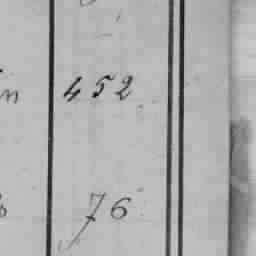 n 452
76